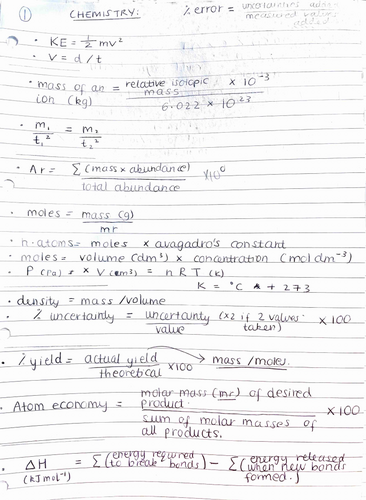 ① CHEMISTRY: % error = uncertainties using
measured values
added
• KE = 1/2 mv²
• V = d / t
• mass of an ion (kg) = relative isotopic mass × 10⁻³ / 6.022 × 10²³
• m₁/t₁² = m₂/t₂²
• Ar = Σ(mass × abundance) / total abundance
• moles = mass (g) / mr
• n. atoms = moles × avagadro's constant
• moles = volume (dm³) × concentration (mol dm⁻³)
• P (Pa) × V (m³) = n R T (K)
K = °C + 273
• density = mass / volume
• % uncertainty = uncertainty (×2 if 2 values taken) / value × 100
• % yield = actual yield / theoretical × 100 → mass / moles.
• Atom economy = molar mass (mr) of desired product. / sum of molar masses of all products. × 100
• ΔH (kJ mol⁻¹) = Σ(energy required to break bonds) − Σ(energy released when new bonds formed.)